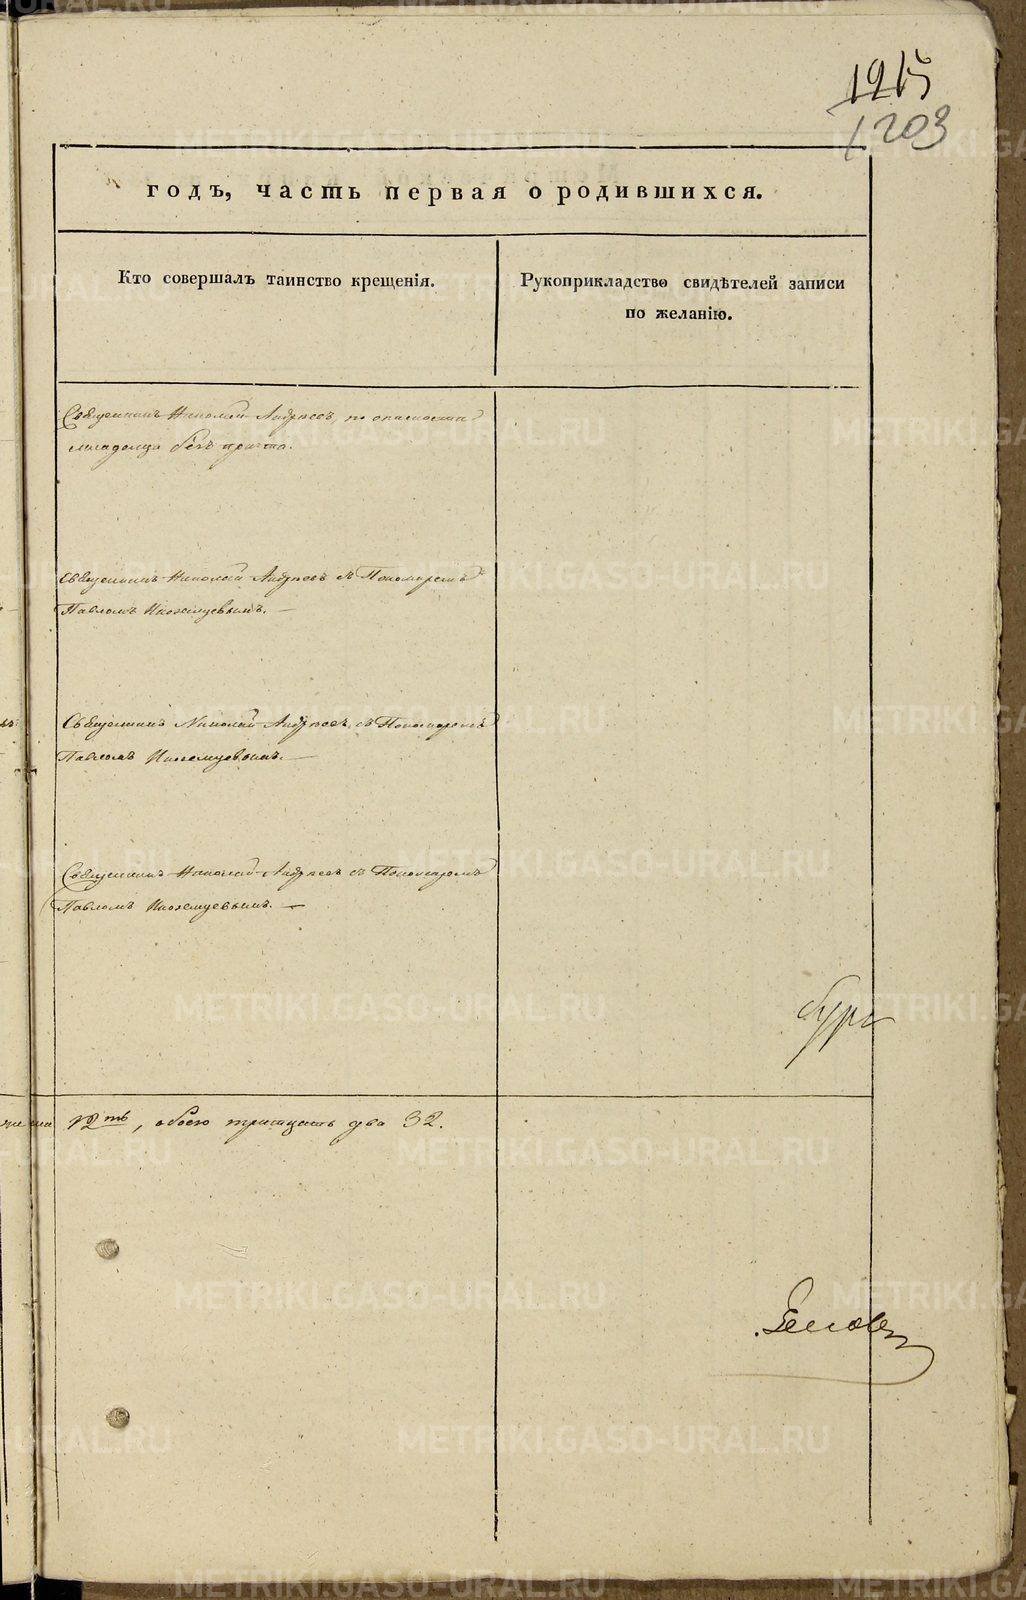 1215
1203
годъ, часть первая о родившихся.
Кто совершалъ таинство крещенія.
Рукоприкладство свидѣтелей записи
по желанію.
Священникъ Николай Андреевъ, по опасности
младенца безъ причта.
Священникъ Николай Андреевъ съ Пономаремъ
Павломъ Иноземцевымъ. —
Священникъ Николай Андреевъ съ Пономаремъ
Павломъ Иноземцевымъ. —
Священникъ Николай Андреевъ съ Пономаремъ
Павломъ Иноземцевымъ. —
12ть, обоего тритцать два 32.
METRIKI.GASO-URAL.RU